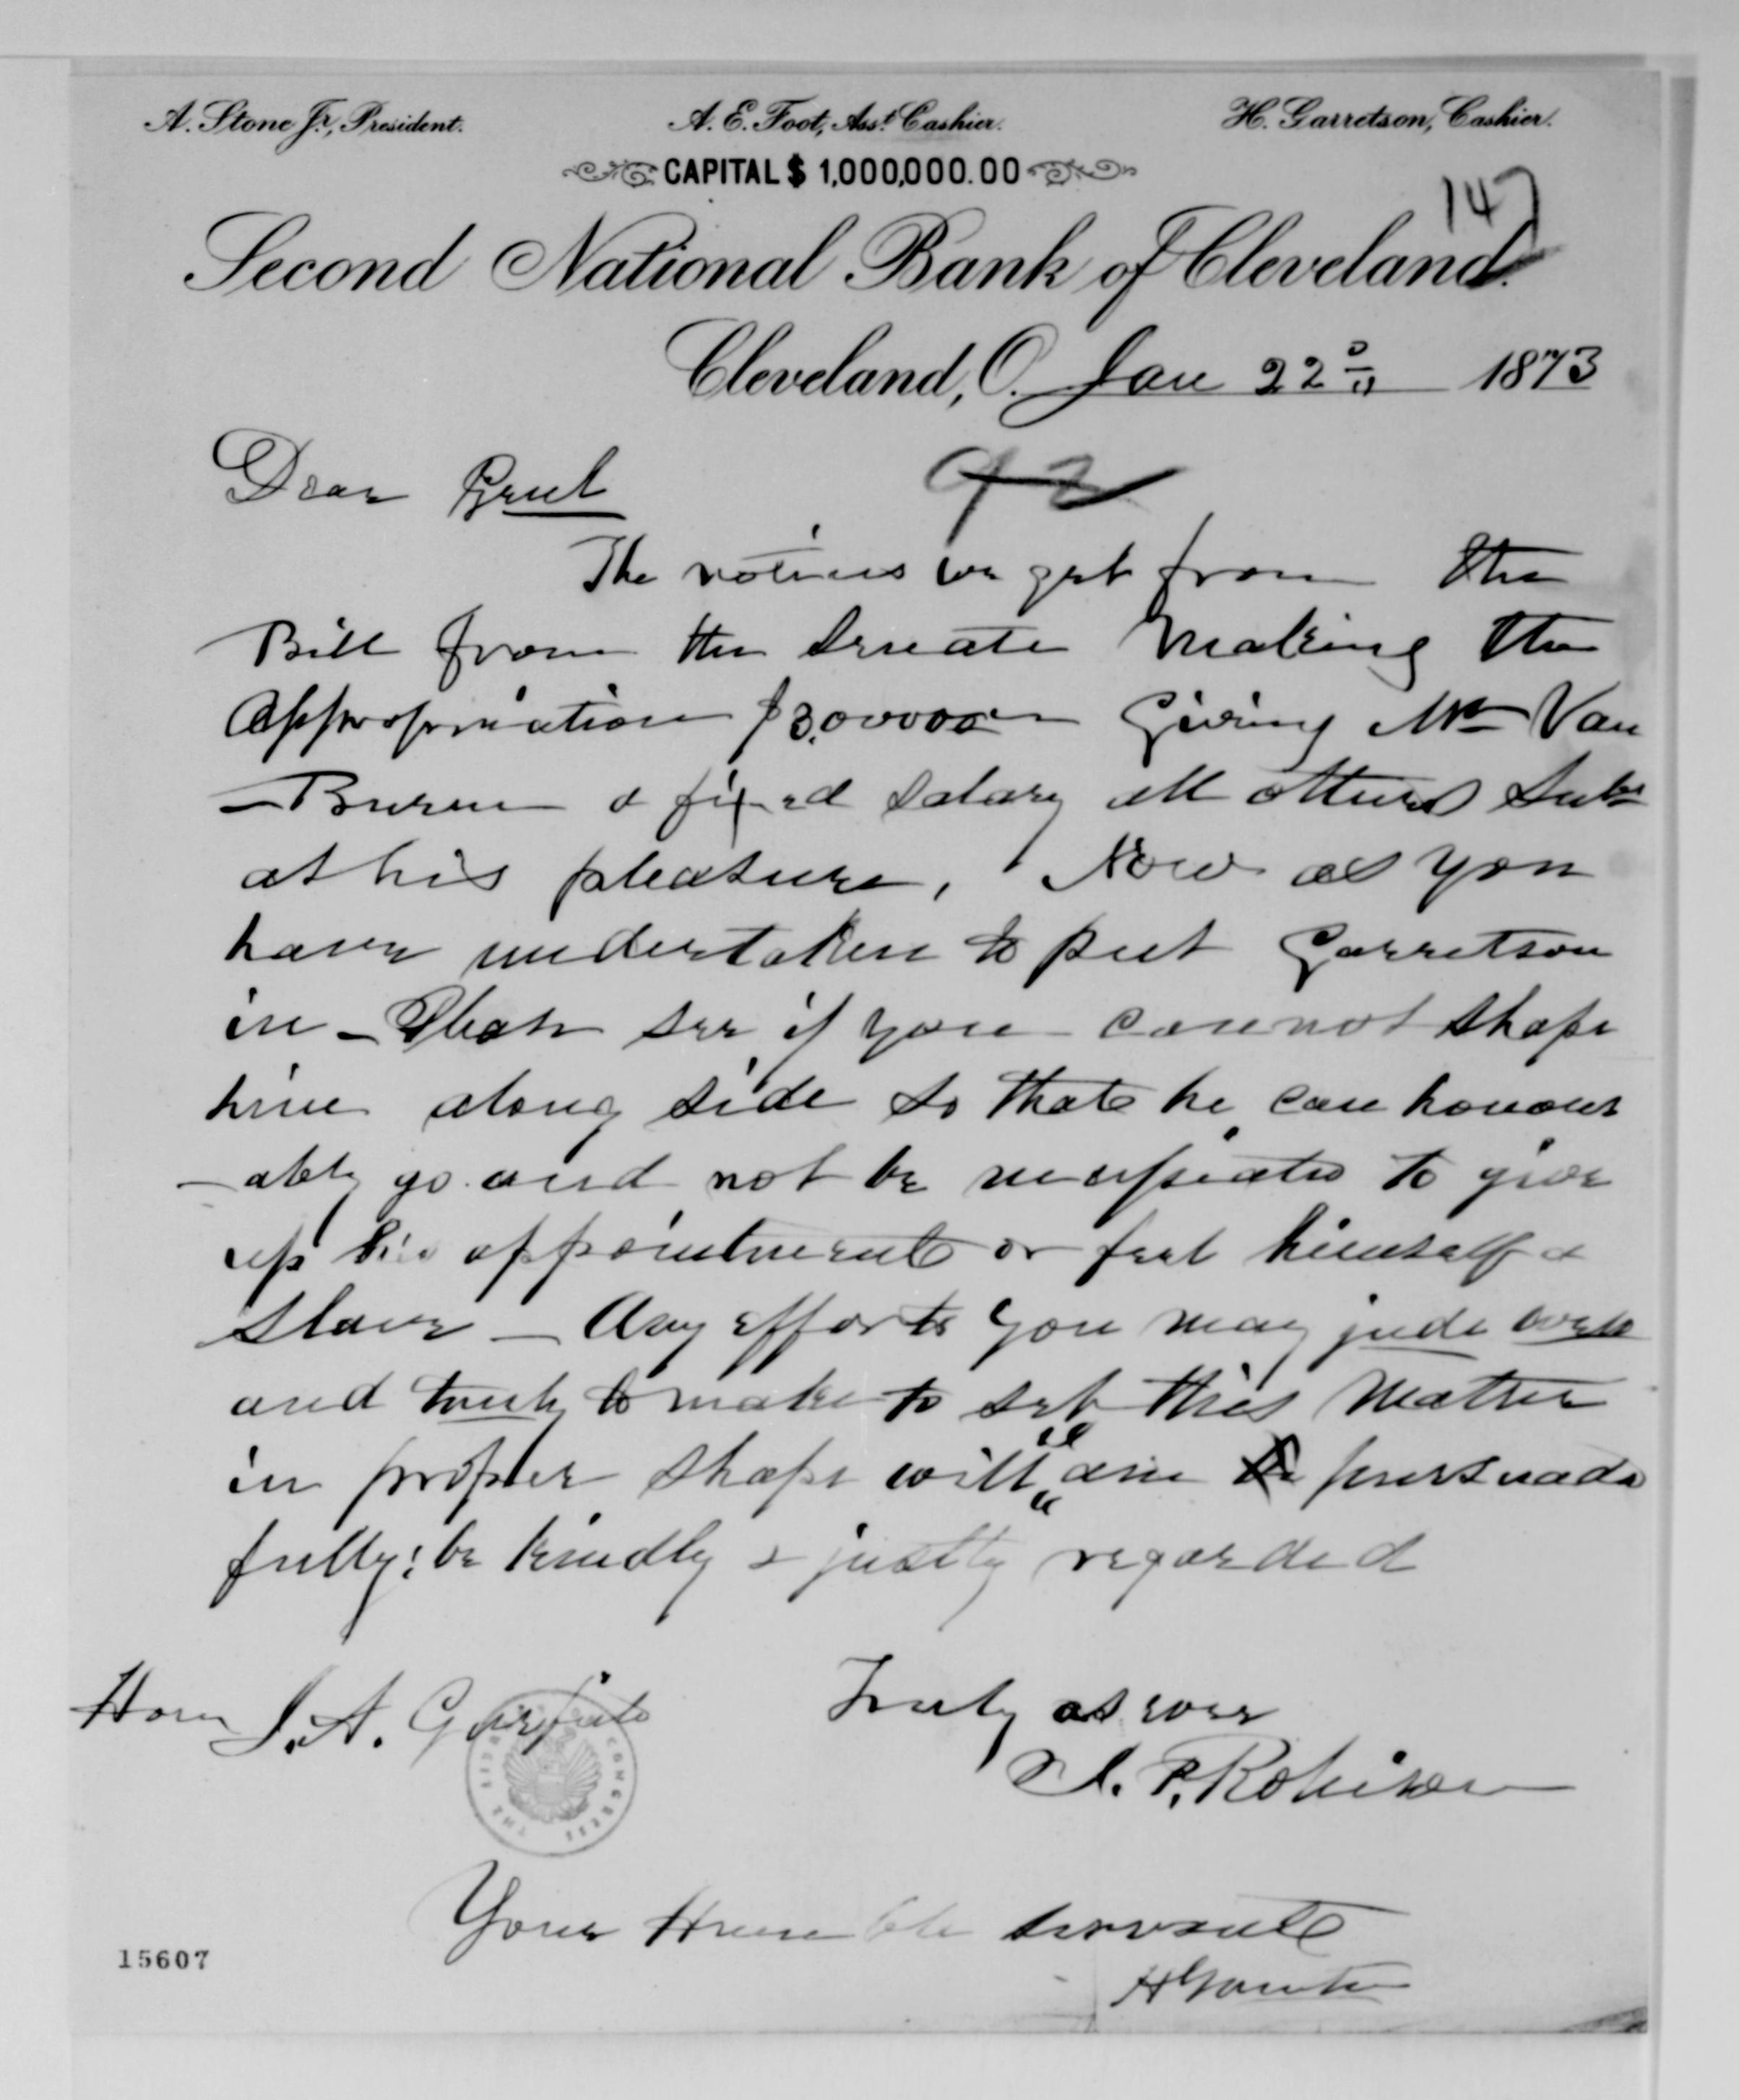 A. Stone Jr., President.
A. E. Foot, Asst. Cashier.
H. Garretson, Cashier.
CAPITAL $ 1,000,000.00
147
Second National Bank of Cleveland.
Cleveland, O. Jan 22nd 1873
Dear Genl
92
The notices we get from the
Bill from the Senate making the
Appropriation $3,00000 Giving Mr Van
-Buren a fixed salary all others
at his pleasure, Now as you
have undertaken to put Garretson
in - see if you cannot shape
him along side so that he can honour
-ably go and not be necessitated to give
up his appointment or feel himself a
slave - Any efforts you may
and to make to set this matter
in proper shape will "I" am persuade
fully; be kindly & justly regarded
Hon J. A. Garfield
Truly as ever
J. P. Robison
THE LIBRARY CONGRESS
Your Humble servant
H Garretson
15607